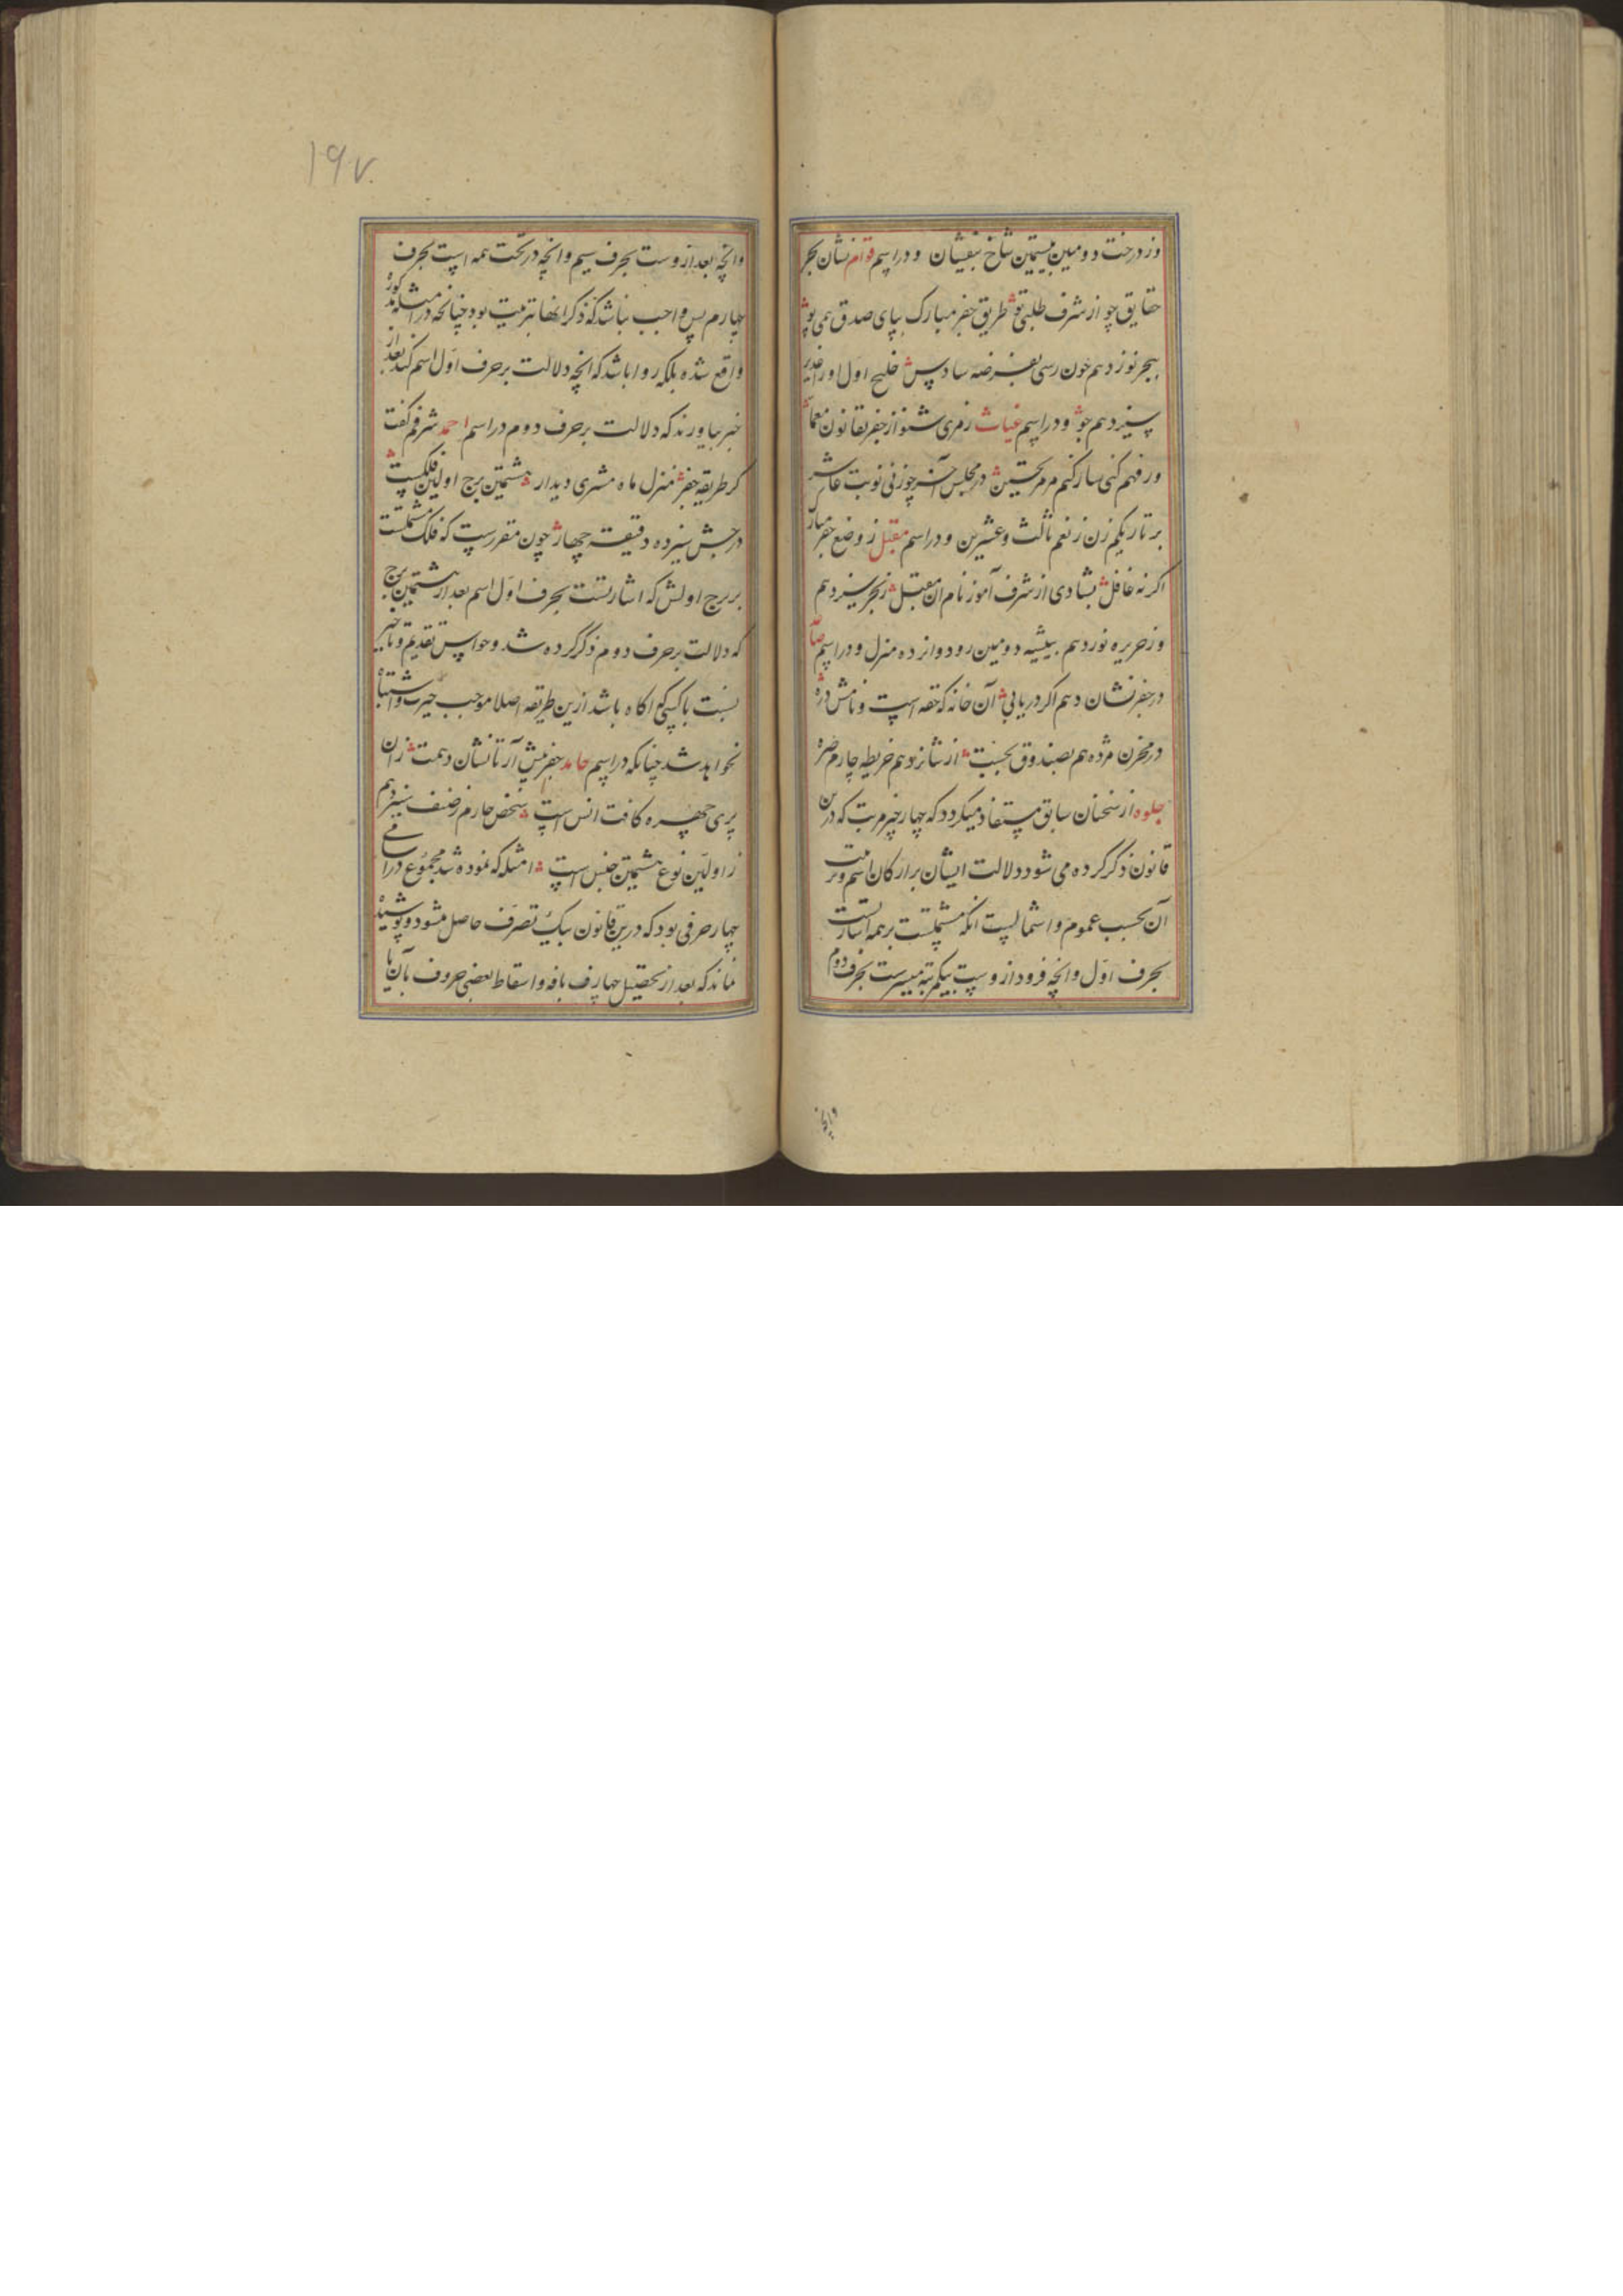 وز درخت دومین بیستمین شاخ بیفشان و در اسم قوام نشان بحر
حقایق چو از شرف طلبی تو طریق جفر مبارک بپای صدق همی پو
ببحر نوزدهم چون رسی سادس خلیج اول او را
سیزدهم جو و در اسم غیاث رمزی شنو از جفر بقانون معما
ور فهم کنی ساز کنم مر تحسین در مجلس چو زنی نوبت عاشر
بر تار یکم زن ز نغم ثالث و عشرین و در اسم مقبل ز وضع جفر مبارک
اگر نه غافل بشادی از شرف آموز نام آن مقبل ز بحر سیزدهم
وز جزیره نوزدهم بیشه دومین رود و دوانزده منزل و در اسم
در جفر نشان دهم اگر دریابی آن خانه که حقه است و نامش دره
در مخزن هم بصندوق نخست از شانزدهم خریطه چارم صره
جلوه از سخنان سابق مستفاد میگردد که چهار چیز مرتب که درین
قانون ذکر کرده می شود دلالت ایشان بر ارکان اسم و ترتیب
آن بحسب عموم و اشتمالیست آنکه مشتملست بر همه اشارتست
بحرف اول و آنچه فرود ازوست بیکمرتبه بحرف دوم
وآنچه
۱۹۷
وآنچه بعد ازوست بحرف سیم و آنچه در تحت همه است بحرف
چهارم پس واجب نباشد که ذکر آنها بترتیب بود چنانچه در امثله مذکور
واقع شده بلکه روا باشد که آنچه دلالت بر حرف اول اسم کند بعد از
خبر بیاورند که دلالت بر حرف دوم در اسم احمد شرفم گفت
کر طریقه جفر منزل ماه مشتری دیدار هشتمین برج اولین فلکست
درجش سیزده دقیقه چهار چون مقررست که فلک مشتملست
بر برج اولش که اشارتست بحرف اول اسم بعد از هشتمین برج
که دلالت بر حرف دوم ذکر کرده شد و حواس تقدیم و تاخیر
نسبت با کسی که آگاه باشد ازین طریقه اصلا موجب حیرت و اشتباه
نخواهد شد چنانکه در اسم حامد جفر پیش آر تا نشان دهمت زان
پری چهره کافت انس است شخص چارم ز صنف سیزدهم
ز اولین نوع هشتمین جنس است امثله که نموده شد مجموع در اسامی
چهار حرفی بود که درین قانون بیک تصرف حاصل میشود و پوشیده
نماند که بعد از تحصیل چهار حرف یا فوق و اسقاط بعضی حروف بآن یا